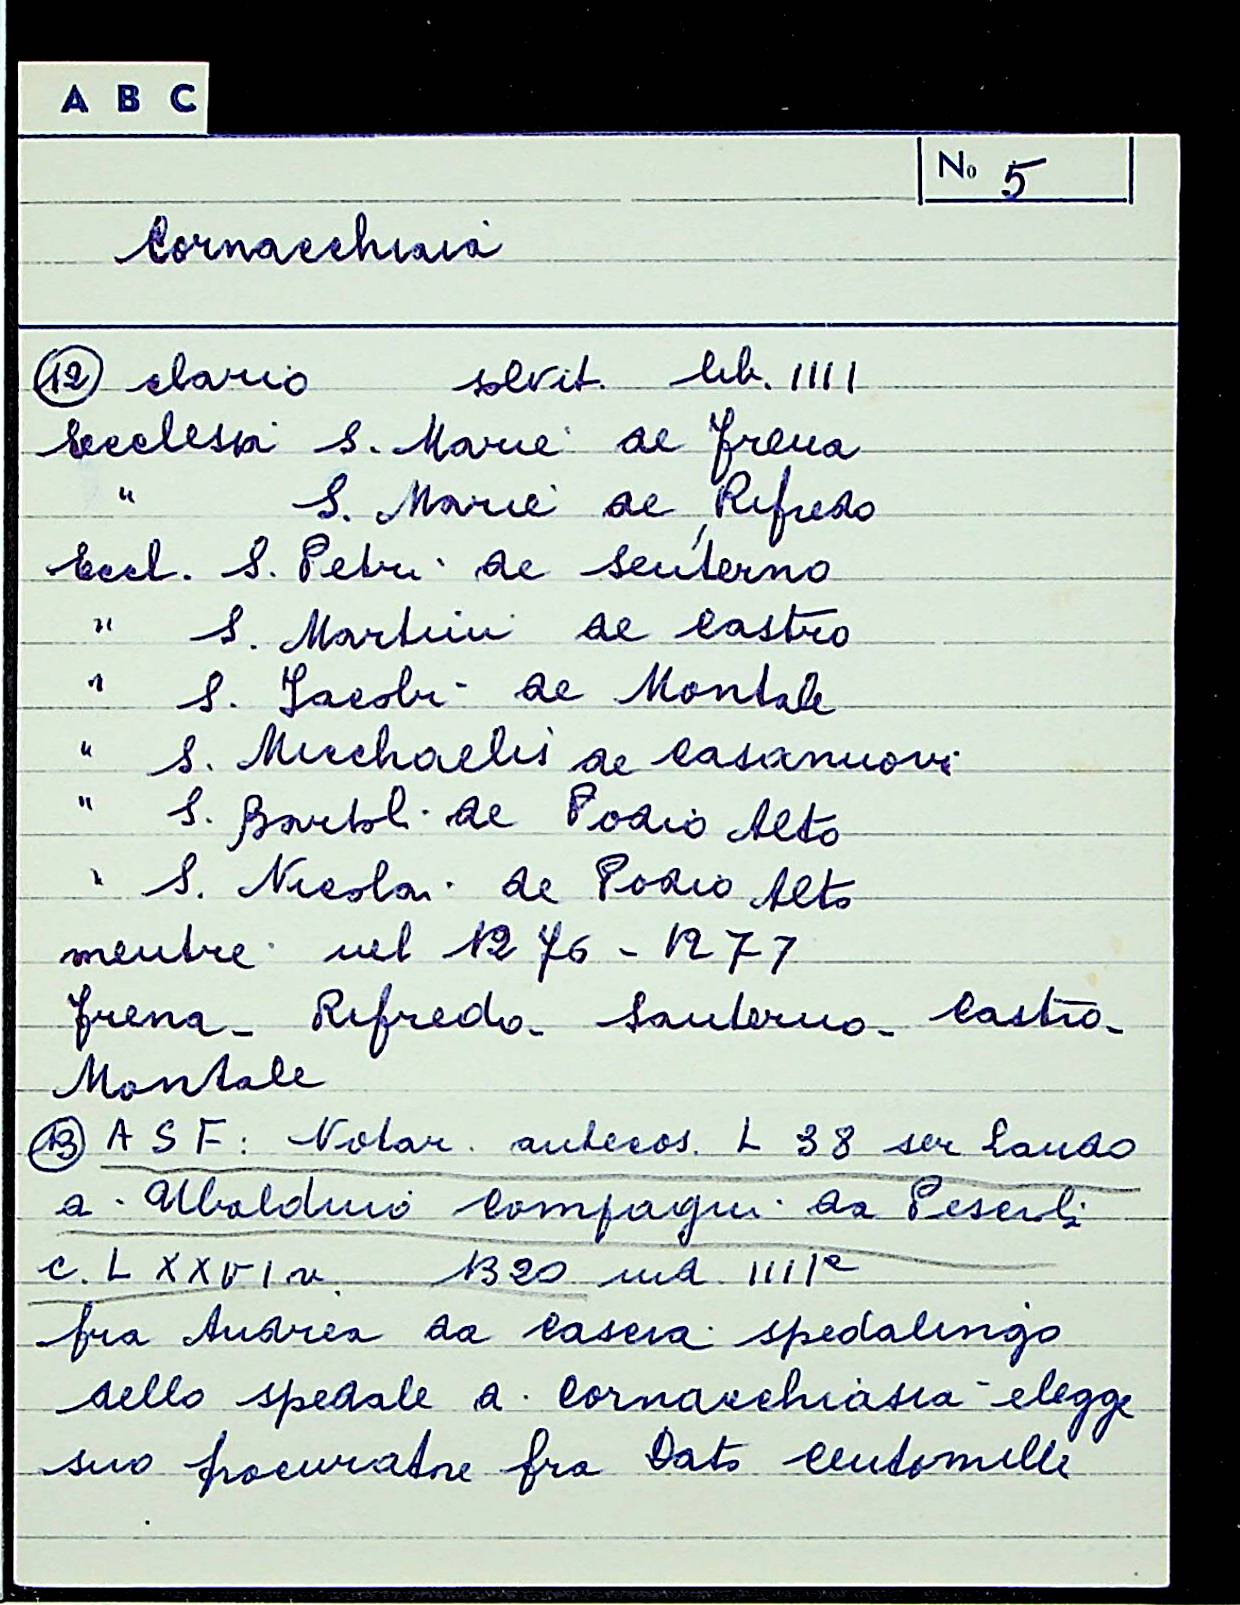 A B C
No 5
Cornacchiaia
12 clario solvit. lib. IIII
Ecclesia S. Marie de Frena
" S. Marie de Rifredo
Eccl. S. Petri de Senterno
" S. Martini de Castro
" S. Jacobi de Montale
" S. Micchaelis de Casanuovi
" S. Bartol. de Podio Alto
" S. Nicolai de Podio Alto
mentre nel 1276 - 1277
Frena - Rifredo - Santerno - Castro -
Montale
13 A S F: Notar. antecos. L 38 ser Lando
d. Ubaldino Compagni da Pesciola
c. L X X V I v 1320 ind. IIII
fra Andrea da Cascia spedalingo
dello spedale d. Cornacchiaia elegge
suo procuratore fra Dato Centomille